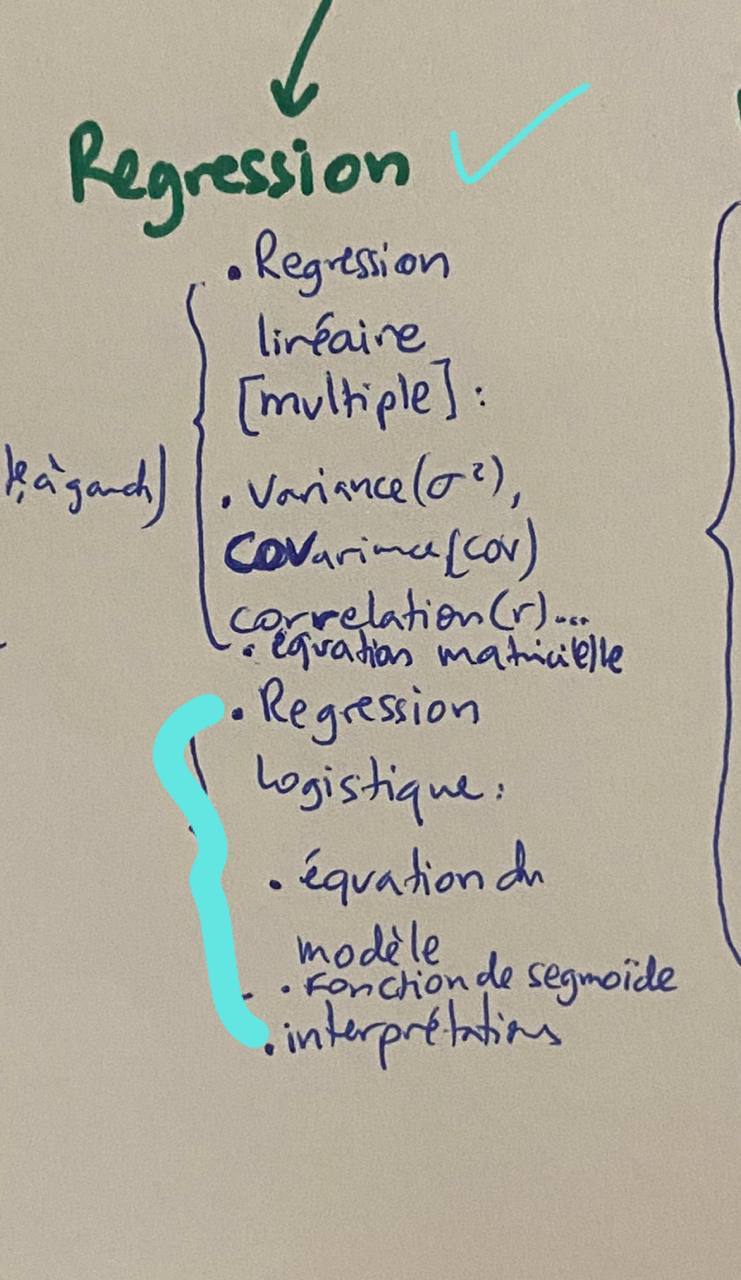 Regression
. Regression
linéaire
[multiple] :
à gauch)
. Variance (σ²),
covariance (cov)
correlation (r)...
. équation matricielle
. Regression
Logistique :
. équation du
modèle
. Fonction de segmoïde
. interprétations